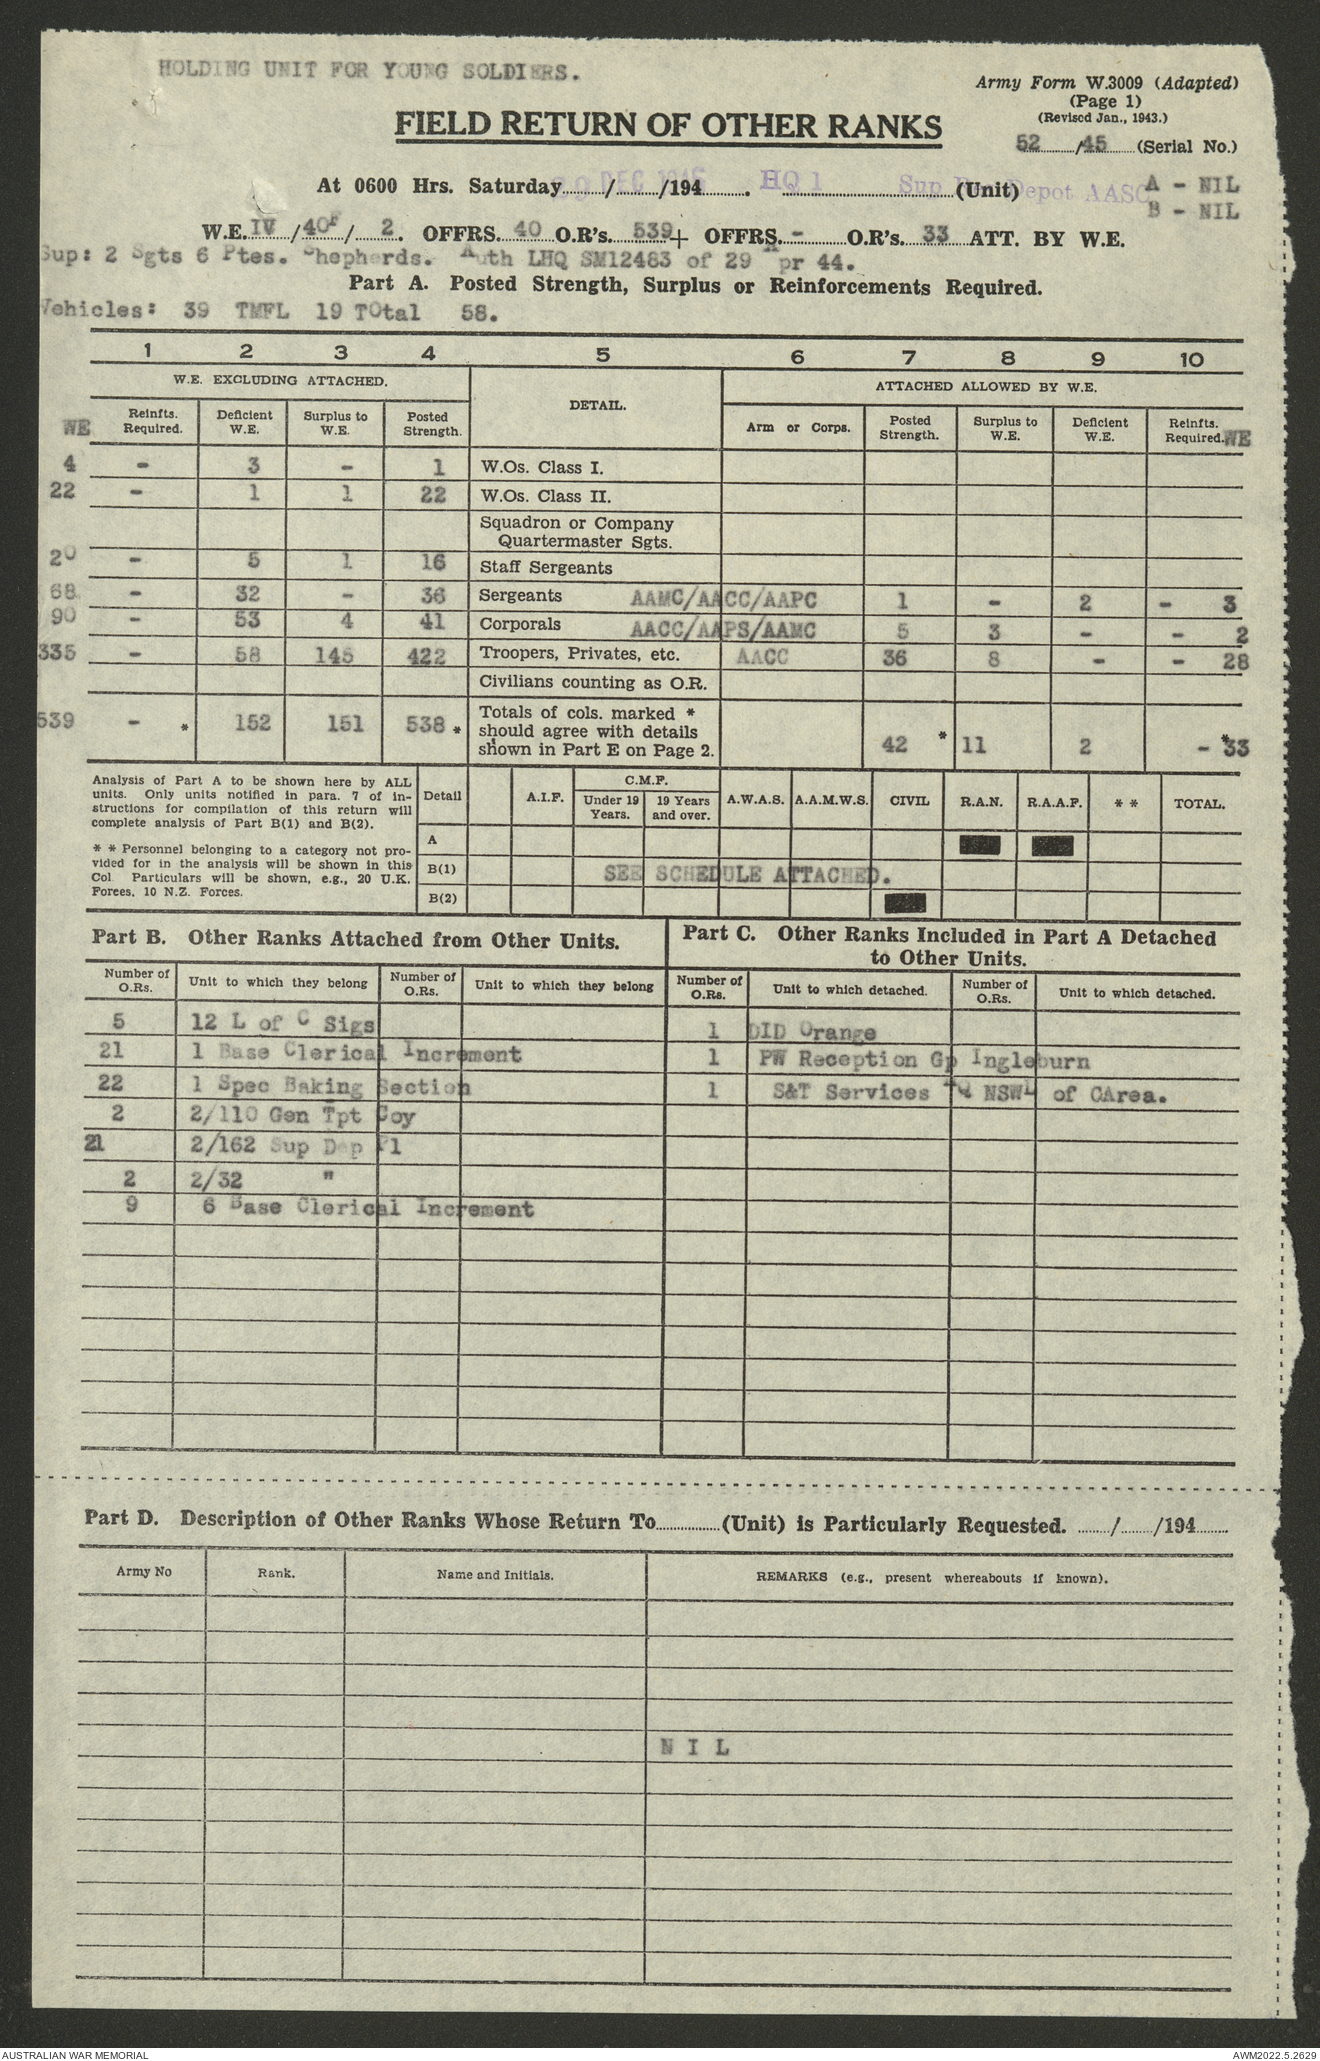 HOLDING UNIT FOR YOUNG SOLDIERS.
Army Form W.3009 (Adapted)
(Page 1)
(Revised Jan., 1943.)
FIELD RETURN OF OTHER RANKS
52 /45 (Serial No.)
At 0600 Hrs. Saturday / /194 . HQ 1 Sup Depot AASC (Unit) A - NIL
B - NIL
W.E. IV /40F/ 2. OFFRS. 40 O.R's. 539+ OFFRS. - O.R's. 33 ATT. BY W.E.
Sup: 2 Sgts 6 Ptes. Shepherds. Auth LHQ SM12483 of 29 Apr 44.
Part A. Posted Strength, Surplus or Reinforcements Required.
Vehicles: 39 TMFL 19 TOtal 58.
1 2 3 4 5 6 7 8 9 10
W.E. EXCLUDING ATTACHED. DETAIL. ATTACHED ALLOWED BY W.E.
WE Reinfts. Required. Deficient W.E. Surplus to W.E. Posted Strength. Arm or Corps. Posted Strength. Surplus to W.E. Deficient W.E. Reinfts. Required. WE
4 - 3 - 1 W.Os. Class I.
22 - 1 1 22 W.Os. Class II.
Squadron or Company
Quartermaster Sgts.
20 - 5 1 16 Staff Sergeants
68 - 32 - 36 Sergeants AAMC/AACC/AAPC 1 - 2 - 3
90 - 53 4 41 Corporals AACC/AAPS/AAMC 5 3 - - 2
335 - 58 145 422 Troopers, Privates, etc. AACC 36 8 - - 28
Civilians counting as O.R.
539 - * 152 151 538 * Totals of cols. marked *
should agree with details
shown in Part E on Page 2. 42 * 11 2 - *33
Analysis of Part A to be shown here by ALL
units. Only units notified in para. 7 of in-
structions for compilation of this return will
complete analysis of Part B(1) and B(2).
* * Personnel belonging to a category not pro-
vided for in the analysis will be shown in this
Col. Particulars will be shown, e.g., 20 U.K.
Forces, 10 N.Z. Forces.
Detail A.I.F. C.M.F. Under 19 Years. 19 Years and over. A.W.A.S. A.A.M.W.S. CIVIL R.A.N. R.A.A.F. * * TOTAL.
A
B(1) SEE SCHEDULE ATTACHED.
B(2)
Part B. Other Ranks Attached from Other Units.
Part C. Other Ranks Included in Part A Detached
to Other Units.
Number of O.Rs. Unit to which they belong Number of O.Rs. Unit to which they belong Number of O.Rs. Unit to which detached. Number of O.Rs. Unit to which detached.
5 12 L of C Sigs 1 DID Orange
21 1 Base Clerical Increment 1 PW Reception Gp Ingleburn
22 1 Spec Baking Section 1 S&T Services HQ NSWL of CArea.
2 2/110 Gen Tpt Coy
21 2/162 Sup Dep Pl
2 2/32 "
9 6 Base Clerical Increment
Part D. Description of Other Ranks Whose Return To (Unit) is Particularly Requested. / /194
Army No Rank. Name and Initials. REMARKS (e.g., present whereabouts if known).
N I L
AUSTRALIAN WAR MEMORIAL AWM2022.5.2629